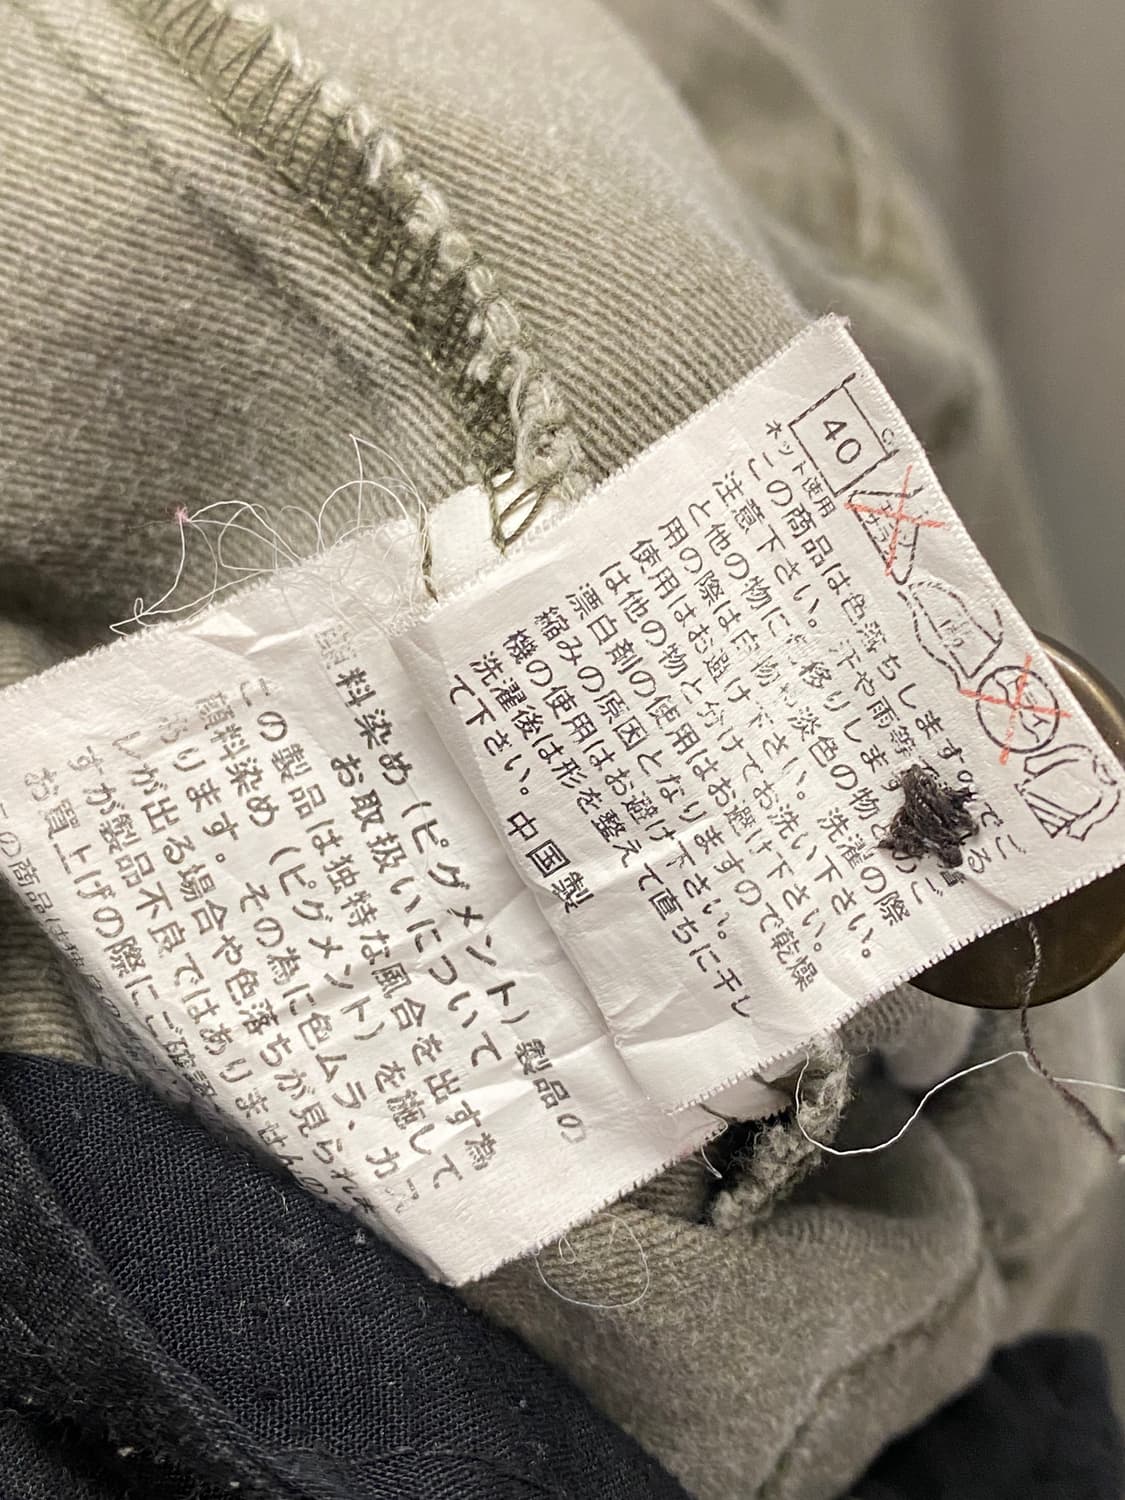 40
ネット使用
エンソサラシ
中
ドライ
この商品は色落ちしますのでご
注意下さい。汗や雨等で
と他の物に色移りします
用の際は白物や淡色の物とのご
使用はお避け下さい。洗濯の際
は他の物と分けてお洗い下さい。
漂白剤の使用はお避け下さい。
縮みの原因となりますので乾燥
機の使用はお避け下さい。
洗濯後は形を整えて直ちに干し
て下さい。中国製
顔料染め(ピグメント)製品の
お取扱いについて
この製品は独特な風合を出す為
顔料染め(ピグメント)を施して
おります。その為に色ムラ、カス
レが出る場合や色落ちが見られま
すが製品不良ではありませんので
お買上げの際にご確認
この商品は